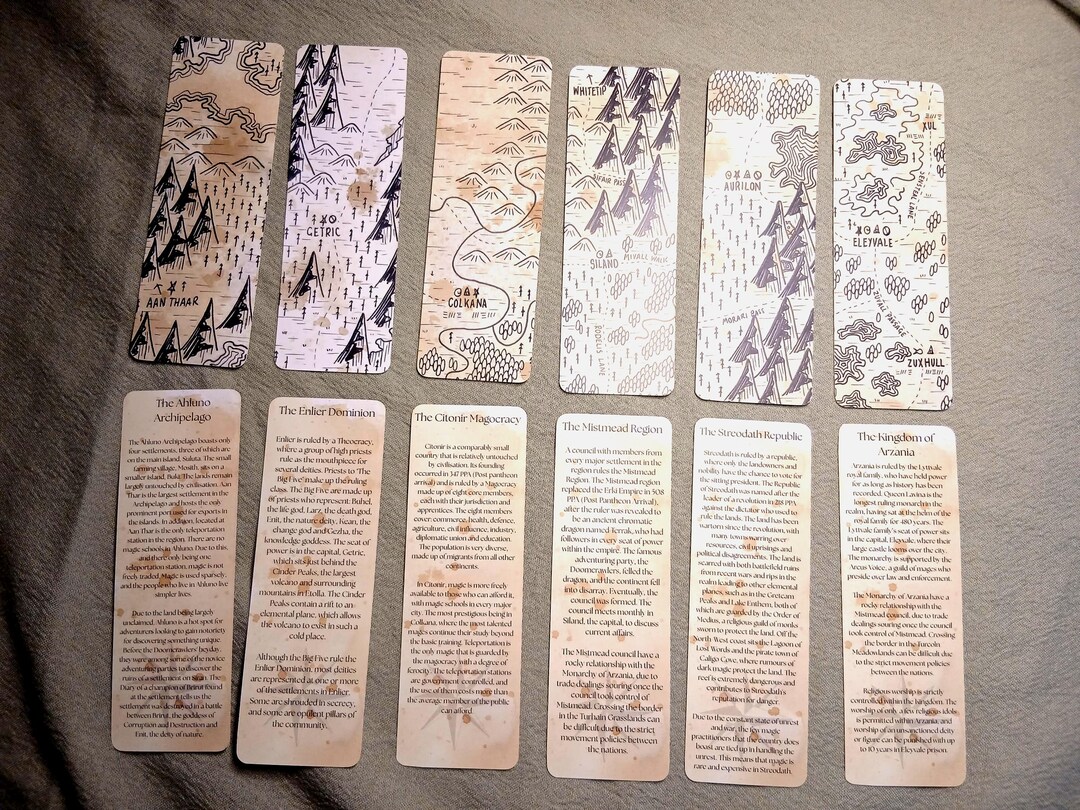 AAN THAAR
GETRIC
COLKANA
WHITETIP
AIFAIR PASS
SILAND
MIVALL
RODELLS LANE
AURILON
MORARI PASS
XUL
LANE
ELEYVALE
PASSAGE
ZUXHULL
The Ahluno
Archipelago
The Ahluno Archipelago boasts only
four settlements, three of which are
on the main island, Suluta. The small
farming village, Mosith, sits on a
smaller island, Bula. The lands remain
largely untouched by civilisation. Aan
Thar is the largest settlement in the
Archipelago and hosts the only
prominent port used for exports in
the islands. In addition, located at
Aan Thar is the only teleportation
station in the region. There are no
magic schools in Ahluno. Due to this,
and there only being one
teleportation station, magic is not
freely traded. Magic is used sparsely,
and the people who live in Ahluno live
simpler lives.
Due to the land being largely
unclaimed, Ahluno is a hot spot for
adventurers looking to gain notoriety
for discovering something unique.
Before the Doomcrawlers' heyday,
they were among some of the novice
adventuring parties to discover the
ruins of a settlement on
Diary of a champion of Beirut found
at the settlement tells us the
settlement was destroyed in a battle
between Beirut, the goddess of
Corruption and Destruction and
Enit, the deity of nature.
The Enlier Dominion
Enlier is ruled by a Theocracy,
where a group of high priests
rule as the mouthpiece for
several deities. Priests to 'The
Big Five' make up the ruling
class. The Big Five are made up
of priests who represent: Buhel,
the life god, Larz, the death god,
Enit, the nature deity, Kean, the
change god and Gezha, the
knowledge goddess. The seat of
power is in the capital, Getric,
which sits just behind the
Cinder Peaks, the largest
volcano and surrounding
mountains in Etolla. The Cinder
Peaks contain a rift to an
elemental plane, which allows
the volcano to exist in such a
cold place.
Although the Big Five rule the
Enlier Dominion, most deities
are represented at one or more
of the settlements in Enlier.
Some are shrouded in secrecy,
and some are opulent pillars of
the community.
The Citonir Magocracy
Citonir is a comparably small
country that is relatively untouched
by civilisation. Its founding
occurred in 347 PPA (Post pantheon
arrival) and is ruled by a Magocracy
made up of eight core members,
each with their jurisdiction and
apprentices. The eight members
cover: commerce, health, defence,
agriculture, civil influence, industry,
diplomatic union and education.
The population is very diverse,
made up of migrants from all other
continents.
In Citonir, magic is more freely
available to those who can afford it,
with magic schools in every major
city. The most prestigious being in
Colkana, where the most talented
mages continue their study beyond
the basic training. Teleportation is
the only magic that is guarded by
the magocracy with a degree of
ferocity. The teleportation stations
are government controlled, and
the use of them costs more than
the average member of the public
can afford.
The Mistmead Region
A council with members from
every major settlement in the
region rules the Mistmead
Region. The Mistmead region
replaced the Erld Empire in 508
PPA (Post Pantheon Arrival),
after the ruler was revealed to
be an ancient chromatic
dragon named Kerrak, who had
followers in every seat of power
within the empire. The famous
adventuring party, the
Doomcrawlers, felled the
dragon, and the continent fell
into disarray. Eventually, the
council was formed. The
council meets monthly in
Siland, the capital, to discuss
current affairs.
The Mistmead council have a
rocky relationship with the
Monarchy of Arzania, due to
trade dealings souring once the
council took control of
Mistmead. Crossing the border
in the Turhain Grasslands can
be difficult due to the strict
movement policies between
the nations.
The Streodath Republic
Streodath is ruled by a republic,
where only the landowners and
nobility have the chance to vote for
the sitting president. The Republic
of Streodath was named after the
leader of a revolution in 218 PPA
against the dictator who used to
rule the lands. The land has been
wartorn since the revolution, with
many towns warring over
resources, civil uprisings and
political disagreements. The land is
scarred with both battlefield ruins
from recent wars and rips in the
realm leading to other elemental
planes, such as in the Gretcam
Peaks and Lake Enthem, both of
which are guarded by the Order of
Medius, a religious guild of monks
sworn to protect the land. Off the
North West coast sits the Lagoon of
Lost Words and the pirate town of
Caligo Cove, where rumours of
dark magic protect the land. The
reef is extremely dangerous and
contributes to Streodath's
reputation for danger.
Due to the constant state of unrest
and war, the few magic
practitioners that the country does
boast are tied up in handling the
unrest. This means that magic is
rare and expensive in Streodath.
The Kingdom of
Arzania
Arzania is ruled by the Lyttvale
royal family, who have held power
for as long as history has been
recorded. Queen Lavina is the
longest ruling monarch in the
realm, having sat at the helm of the
royal family for 480 years. The
Lyttvale family's seat of power sits
in the capital, Eleyvale, where their
large castle looms over the city.
The monarchy is supported by the
Arcas Voice, a guild of mages who
preside over law and enforcement.
The Monarchy of Arzania have a
rocky relationship with the
Mistmead council, due to trade
dealings souring once the council
took control of Mistmead. Crossing
the border in the Lincrest
Meadowlands can be difficult due to
the strict movement policies
between the nations.
Religious worship is strictly
controlled within the kingdom. The
worship of only a few religious idols
is permitted within Arzania, and
worship of an unsanctioned deity
or figure can be punished with up
to 10 years in Eleyvale prison.